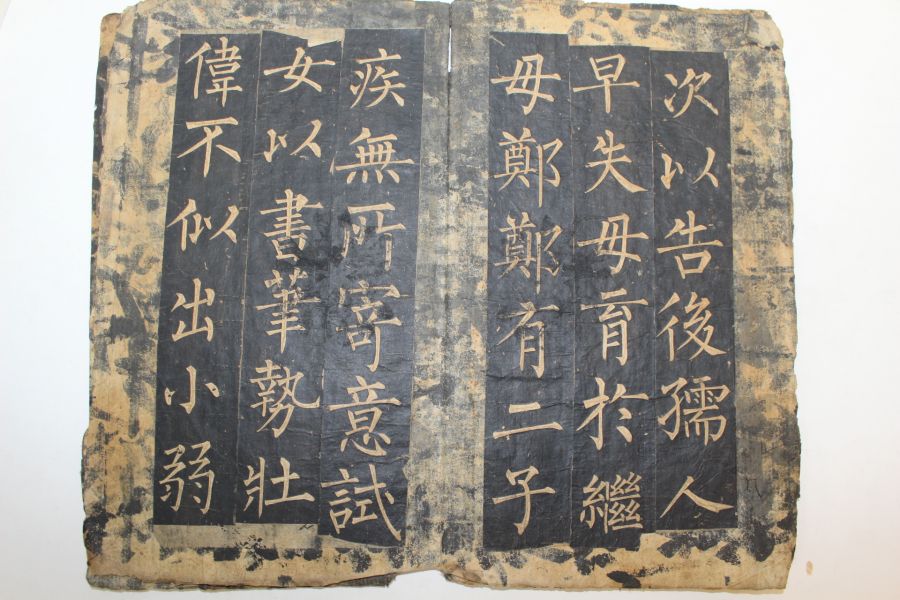 次以告後孺人
早失母育於繼
母鄭鄭有二子
疾無所寄意試
女以書筆勢壯
偉不似出小弱